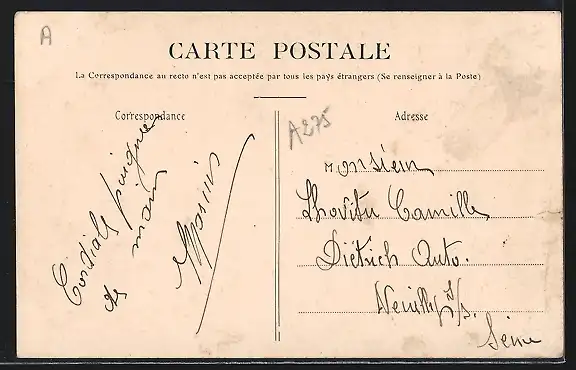 A
CARTE POSTALE
La Correspondance au recto n'est pas acceptée par tous les pays étrangers (Se renseigner à la Poste)
Correspondance
Adresse
A275
Cordiale poignée
de main
Monsieur
Camille
Dietrich Auto.
Neuilly s/s.
Seine